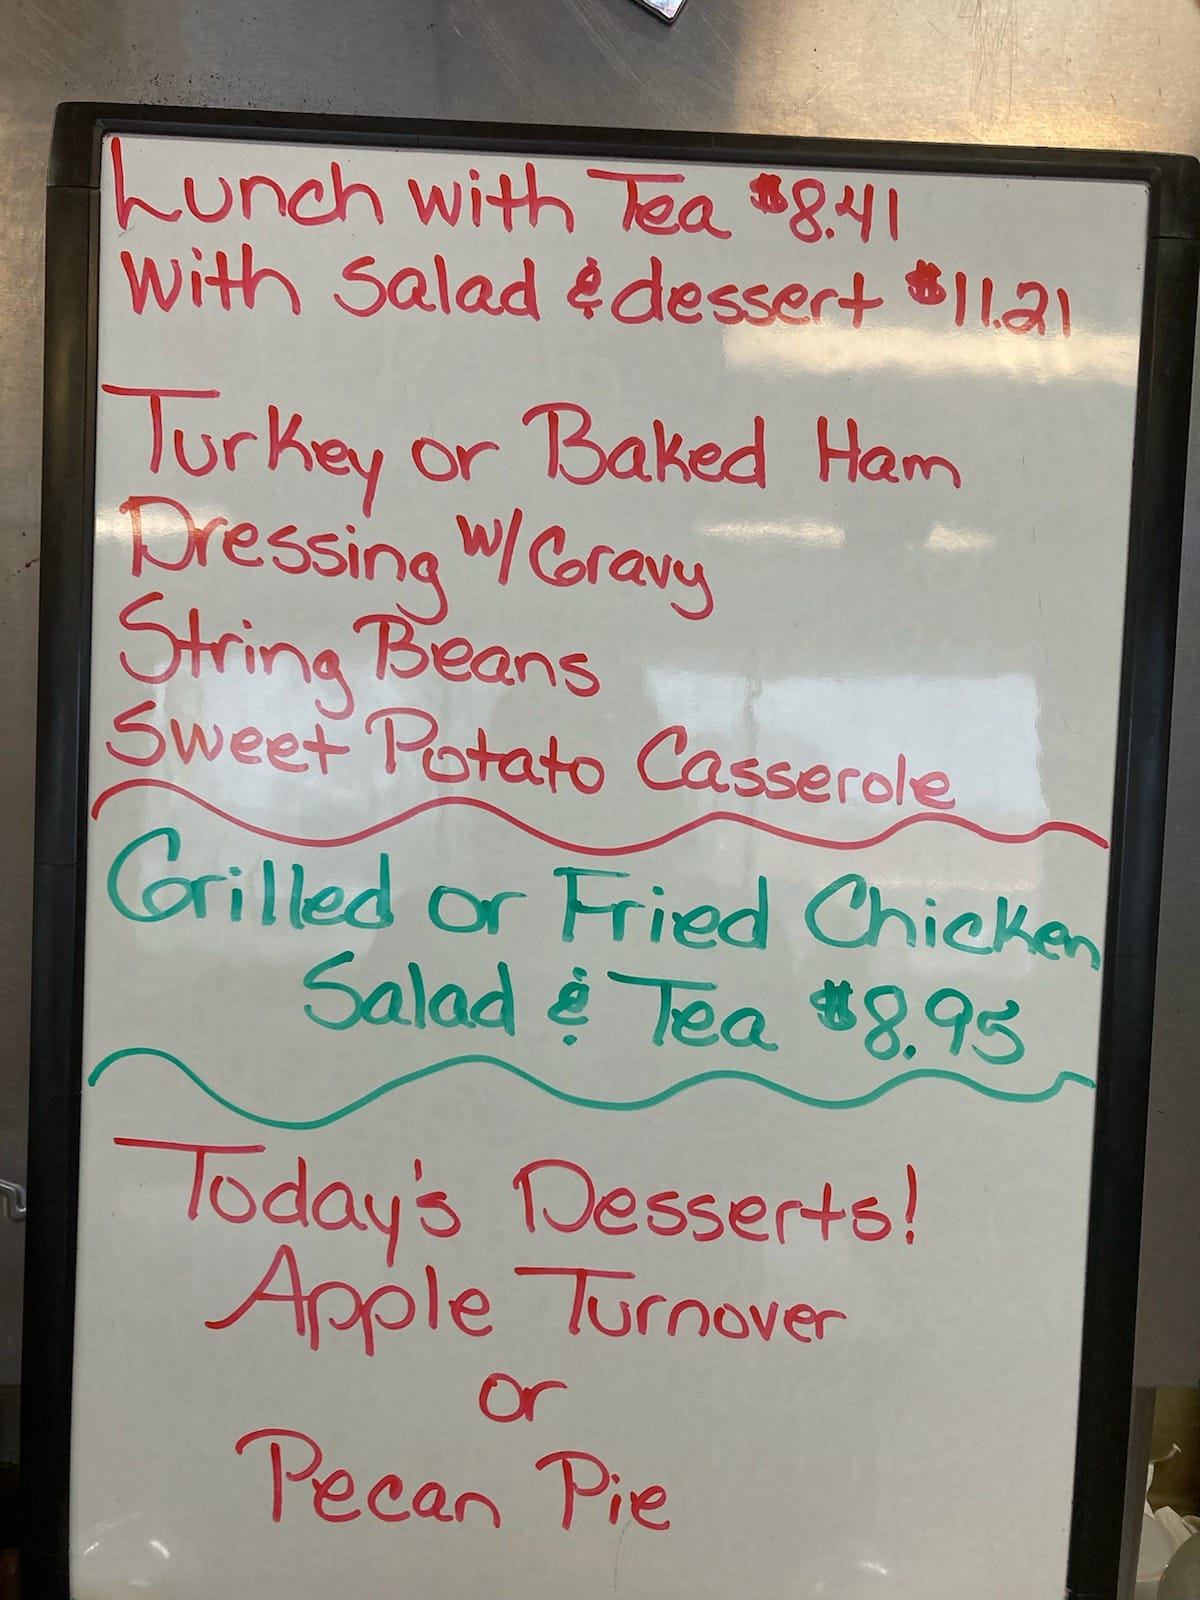 Lunch with Tea $8.41
with Salad & dessert $11.21
Turkey or Baked Ham
Dressing w/Gravy
String Beans
Sweet Potato Casserole
Grilled or Fried Chicken
Salad & Tea $8.95
Today's Desserts!
Apple Turnover
or
Pecan Pie